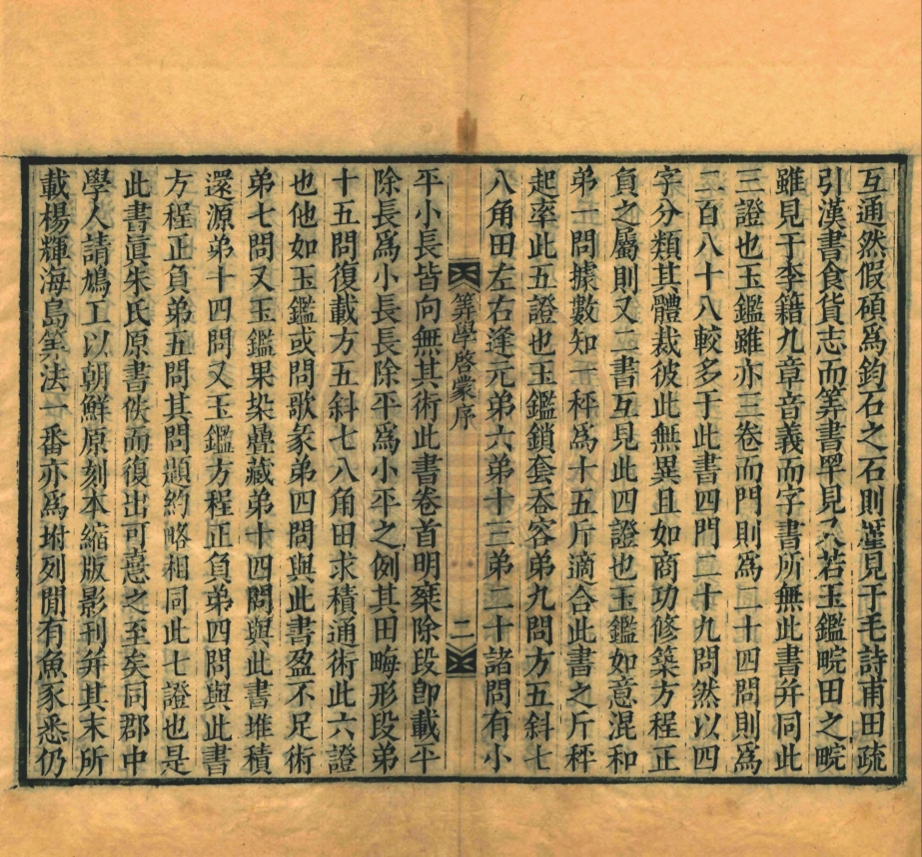 互通然假碩爲鈞石之石則廑見于毛詩甫田疏
引漢書食貨志而筭書罕見又若玉鑑畹田之畹
雖見于李籍九章音義而字書所無此書幷同此
三證也玉鑑雖亦三卷而門則爲二十四問則爲
二百八十八較多于此書四門二十九問然以四
字分類其體裁彼此無異且如商功修築方程正
負之屬則又二書互見此四證也玉鑑如意混和
弟一問據數知一秤爲十五斤適合此書之斤秤
起率此五證也玉鑑鎖套吞容弟九問方五斜七
八角田左右逢元弟六弟十三弟二十諸問有小
筭學啓蒙序
二
平小長皆向無其術此書卷首明椉除段卽載平
除長爲小長長除平爲小平之例其田畮形段弟
十五問復載方五斜七八角田求積通術此六證
也他如玉鑑或問歌彖弟四問與此書盈不足術
弟七問又玉鑑果垜疊藏弟十四問與此書堆積
還源弟十四問又玉鑑方程正負弟四問與此書
方程正負弟五問其問題約略相同此七證也是
此書眞朱氏原書佚而復出可憙之至矣同郡中
學人請鳩工以朝鮮原刻本縮版影刊幷其末所
載楊輝海島筭法一番亦爲坿列閒有魚豕悉仍